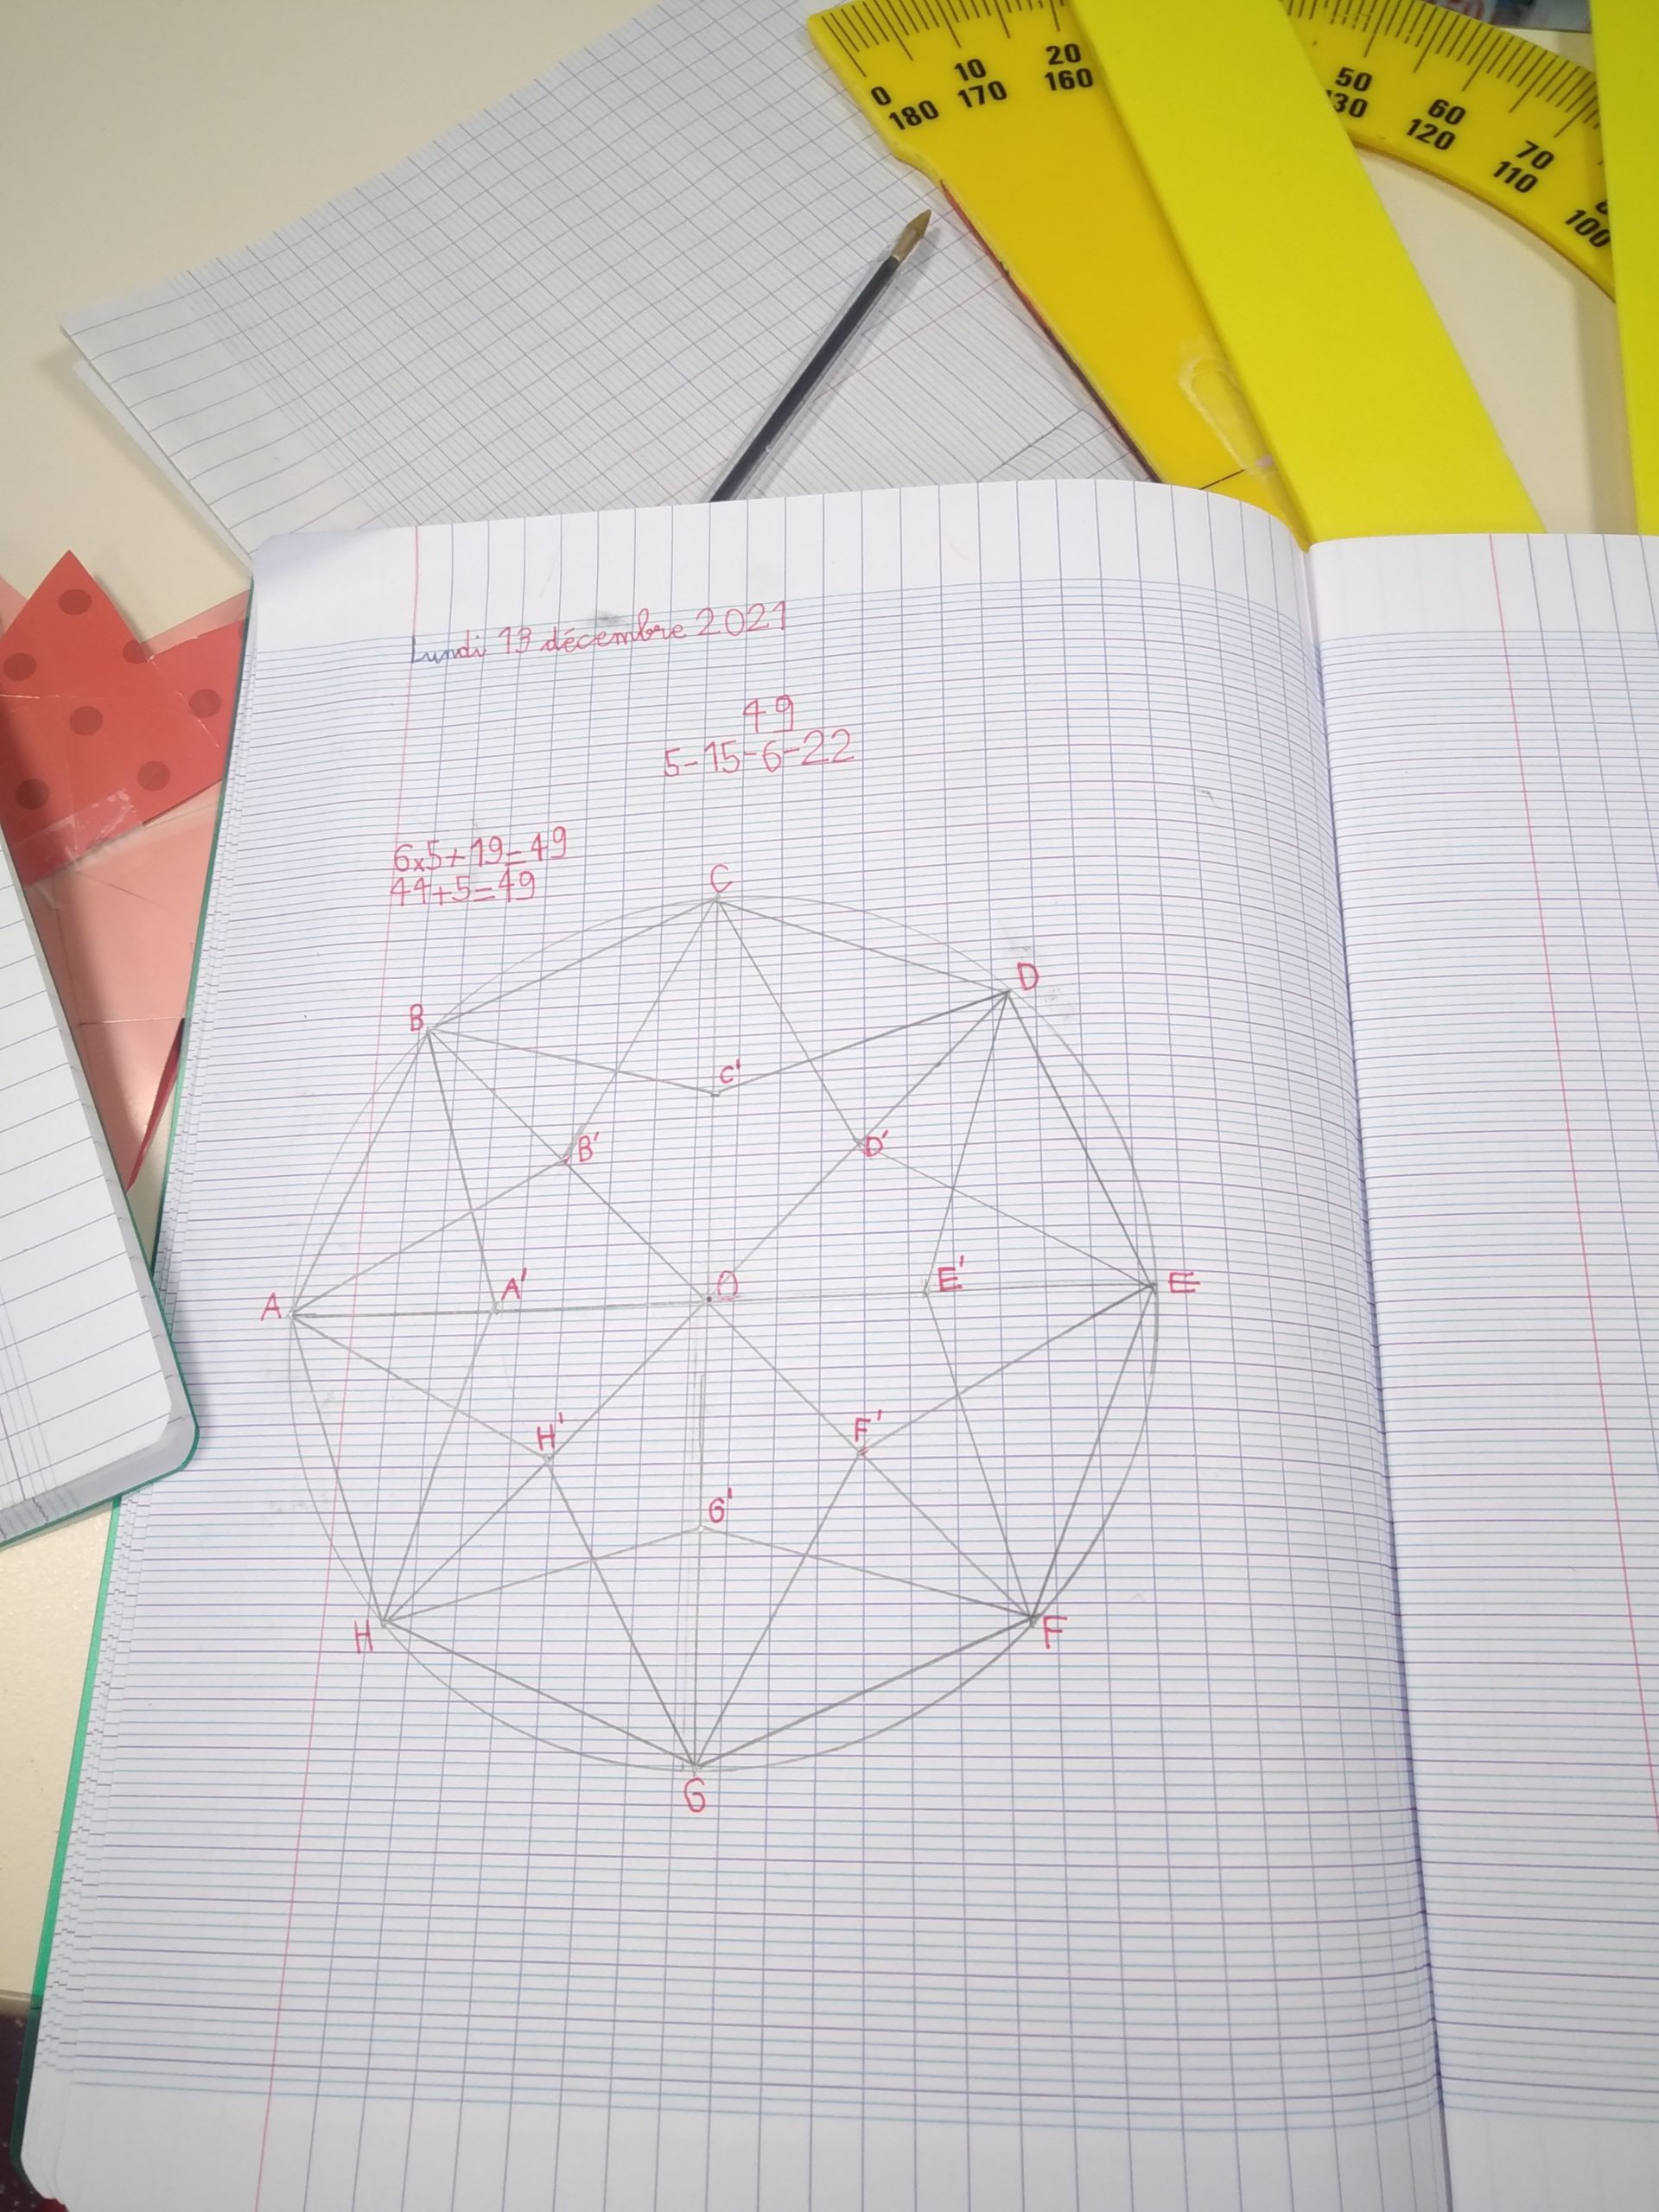 0 10 20 50 60 70
180 170 160 130 120 110 100
Lundi 13 décembre 2021
49
5-15-6-22
6x5+19=49
44+5=49
C
D
B
C'
B'
D'
A
A'
O
E'
E
H'
F'
G'
H
F
G